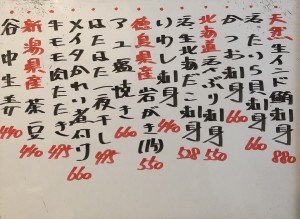 天然生インド鮪刺身 880
活たいら貝刺身 660
かつお刺身 660
北海道活つぶ刺身 550
活生北海だこ刺身 528
いわし刺身 440
徳島県産岩がき(内) 550
アユ塩焼き 660
はたはた一夜干し 495
メイタかれい煮付け 660
牛モモ肉たたき 495
新潟県産茶豆 440
谷中生姜 440